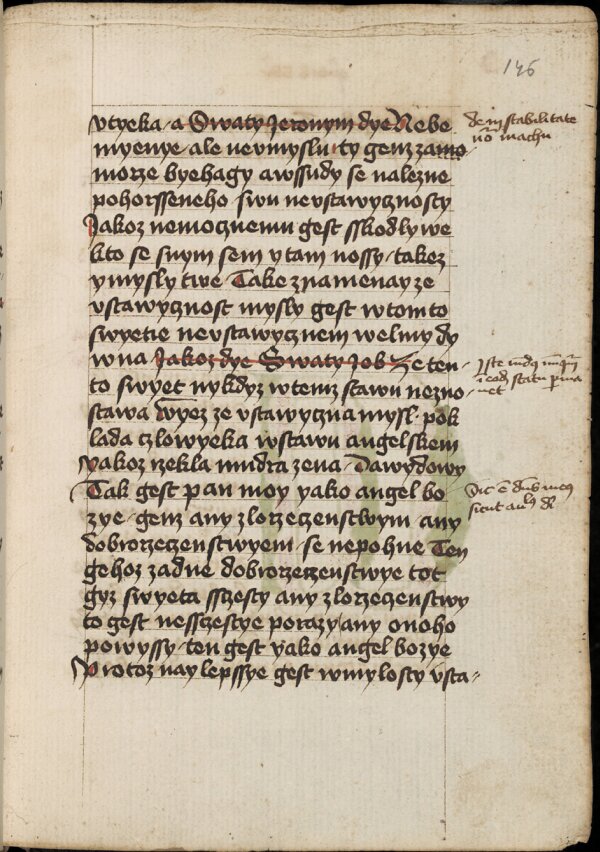 146
vtyeka a Swaty Jeronym dye Nebo
myenye ale nevmyslu ty genz zamo
morze byehagy awssudy se nalezne
pohorsseneho swu nevstawycznosty
Jakoz nemocznemu gest sskodlywe
kto se suym sem ytam nossy takez
ymysly twe Take znamenay ze
vstawycznost mysly gest wtomto
swyetie nevstawycznem welmy dy
wna Jakoz dye Swaty Job Ze ten
to swyet nykdyz wtemz stawu nezno
stawa Wyez ze vstawyczna mysl pok
lada czlowyeka wstawu angelskem
yakoz rzekla mudra zena Dawydowy
Tak gest pan moy yako angel bo
zye genz any zlorzeczenstwym any
dobrorzeczenstwyem se nepohne Ten
gehoz zadne dobrorzeczenstwye tot
gyz swyeta ssczesty any zlorzeczenstwy
to gest nessczestye porazy any onoho
powyssy ten gest yako angel bozye
Protoz nay lepssye gest wmylosty vsta
de instabilitate
sicut